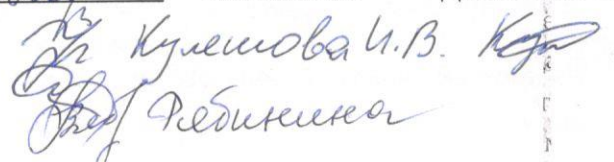 Кулешова И.В.
Рябинина